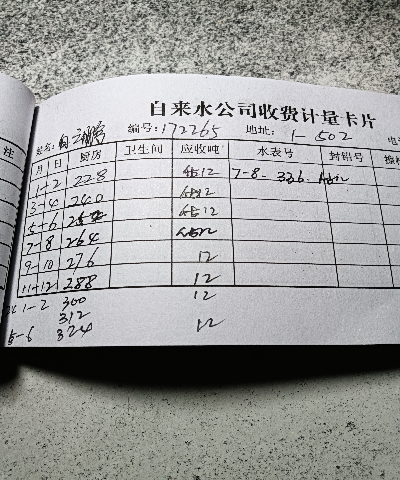 自来水公司收费计量卡片
姓名: 编号:172265 地址: 1-502 电
注 月 日 厨房 卫生间 应收吨 水表号 封铅号
1-2 228 12 7-8 336
3-4 240 12
5-6 252 12
7-8 264 12
9-10 276 12
11-12 288 12
1-2 300 12
312
5-6 324 12